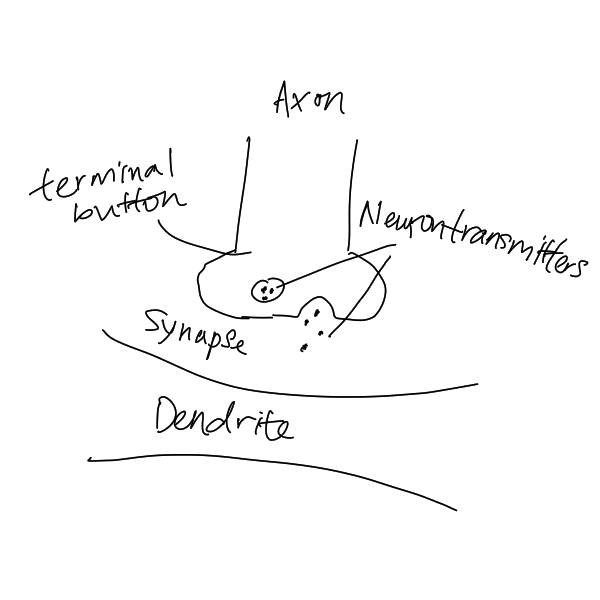 Axon
terminal
button
Neurontransmitters
Synapse
Dendrite